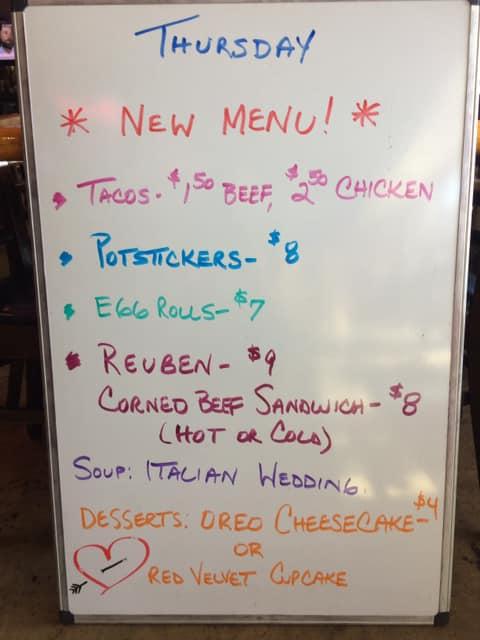 THURSDAY
* NEW MENU! *
• TACOS - $1,50 BEEF, $2 50 CHICKEN
• POTSTICKERS - $8
• EGG ROLLS - $7
• REUBEN - $9
CORNED BEEF SANDWICH - $8
(HOT OR COLD)
SOUP: ITALIAN WEDDING.
DESSERTS: OREO CHEESECAKE - $4
OR
RED VELVET CUPCAKE